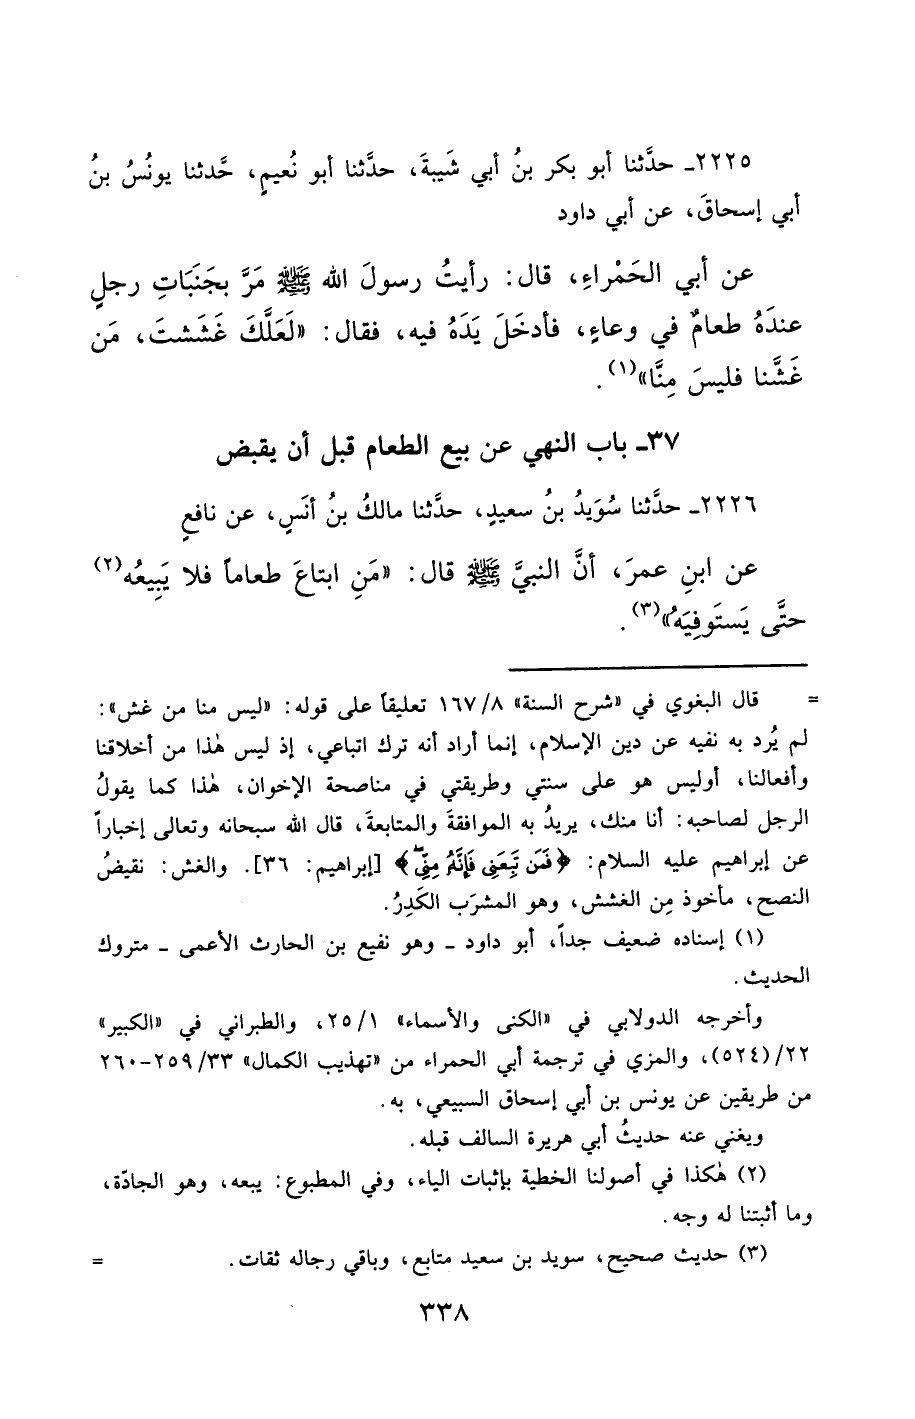 ٢٢٢٥ـ حدَّثنا أبو بكر بنُ أبي شَيبةَ، حدَّثنا أبو نُعيمٍ، حَّدثنا يونُسُ بنُ
أبي إسحاقَ، عن أبي داود
عن أبي الحَمْراءِ، قال: رأيتُ رسولَ الله ﷺ مَرَّ بجَنَبَاتِ رجلٍ
عندَهُ طعامٌ في وعاءٍ، فأدخَلَ يَدَهُ فيه، فقال: «لَعَلَّكَ غَشَشتَ، مَن
غَشَّنا فليسَ مِنَّا»(١).
٣٧ـ باب النهي عن بيع الطعام قبل أن يقبض
٢٢٢٦ـ حدَّثنا سُوَيدُ بنُ سعيدٍ، حدَّثنا مالكُ بنُ أنَسٍ، عن نافعٍ
عن ابنِ عمرَ، أنَّ النبيَّ ﷺ قال: «مَنِ ابتاعَ طعاماً فلا يَبِيعُه(٢)
حتَّى يَستَوفِيَهُ»(٣).
= قال البغوي في «شرح السنة» ١٦٧/٨ تعليقاً على قوله: «ليس منا من غش»:
لم يُرد به نفيه عن دين الإسلام، إنما أراد أنه ترك اتباعي، إذ ليس هٰذا من أخلاقنا
وأفعالنا، أوليس هو على سنتي وطريقتي في مناصحة الإخوان، هٰذا كما يقولُ
الرجل لصاحبه: أنا منك، يريدُ به الموافقةَ والمتابعةَ، قال الله سبحانه وتعالى إخباراً
عن إبراهيم عليه السلام: ﴿فَمَن تَبِعَنِى فَإِنَّهُۥ مِنِّىۖ﴾ [إبراهيم: ٣٦]. والغش: نقيضُ
النصح، مأخوذ مِن الغشش، وهو المشرَب الكَدِرُ.
(١) إسناده ضعيف جداً، أبو داود ـ وهو نفيع بن الحارث الأعمى ـ متروك
الحديث.
وأخرجه الدولابي في «الكنى والأسماء» ٢٥/١، والطبراني في «الكبير»
٢٢/(٥٢٤)، والمزي في ترجمة أبي الحمراء من «تهذيب الكمال» ٢٥٩/٣٣-٢٦٠
من طريقين عن يونس بن أبي إسحاق السبيعي، به.
ويغني عنه حديثُ أبي هريرة السالف قبله.
(٢) هٰكذا في أصولنا الخطية بإثبات الياء، وفي المطبوع: يبعه، وهو الجادّة،
وما أثبتنا له وجه.
(٣) حديث صحيح، سويد بن سعيد متابع، وباقي رجاله ثقات. =
٣٣٨